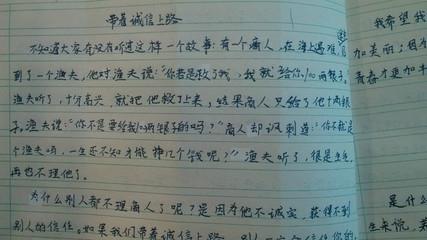 带着诚信上路
不知道大家有没有听过这样一个故事：有一个商人，在海上遇难，遇
到了一个渔夫，他对渔夫说：“你若是救了我，我就给你100两银子。
渔夫听了，十分高兴，就把他救了上来，结果商人只给了他十两银
子。渔夫说：“你不是要给我100两银子的吗？”商人却讽刺道：“你不就是
个渔夫吗，一生还不知才能挣几个钱呢？”渔夫听了，很是生气，
再也不理他了。
为什么别人都不理商人了呢？是因为他不诚实，获得不到
别人的信任。如果我们带着诚信上路，
我希望我
加美丽；因为
青春才更加
是什么
生来说，